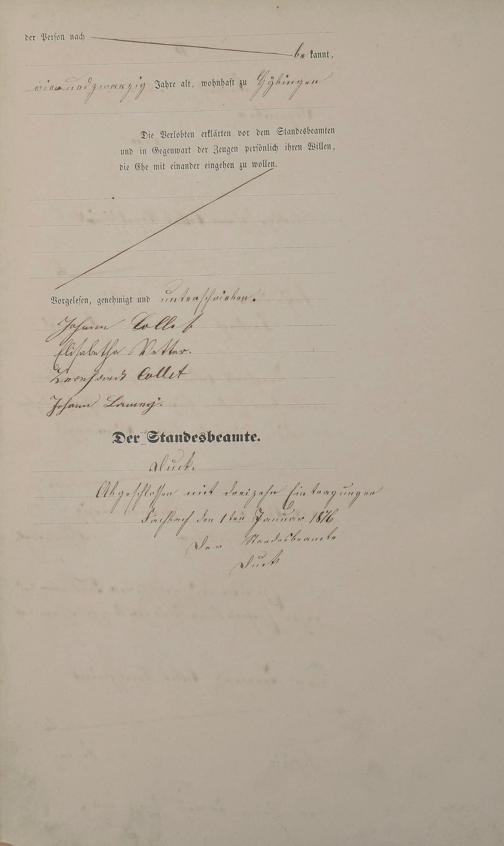 der Person nach
be kannt,
vierundzwanzig Jahre alt, wohnhaft zu
Die Verlobten erklärten vor dem Standesbeamten
und in Gegenwart der Zeugen persönlich ihren Willen,
die Ehe mit einander eingehen zu wollen.
Vorgelesen, genehmigt und unterschrieben.
Johann Collet
Elisabetha Vetter.
Collet
Johann
Der Standesbeamte.
Abgeschlossen mit dreizehn Eintragungen
Fachbach den 1ten Januar 1876
Der Standesbeamte